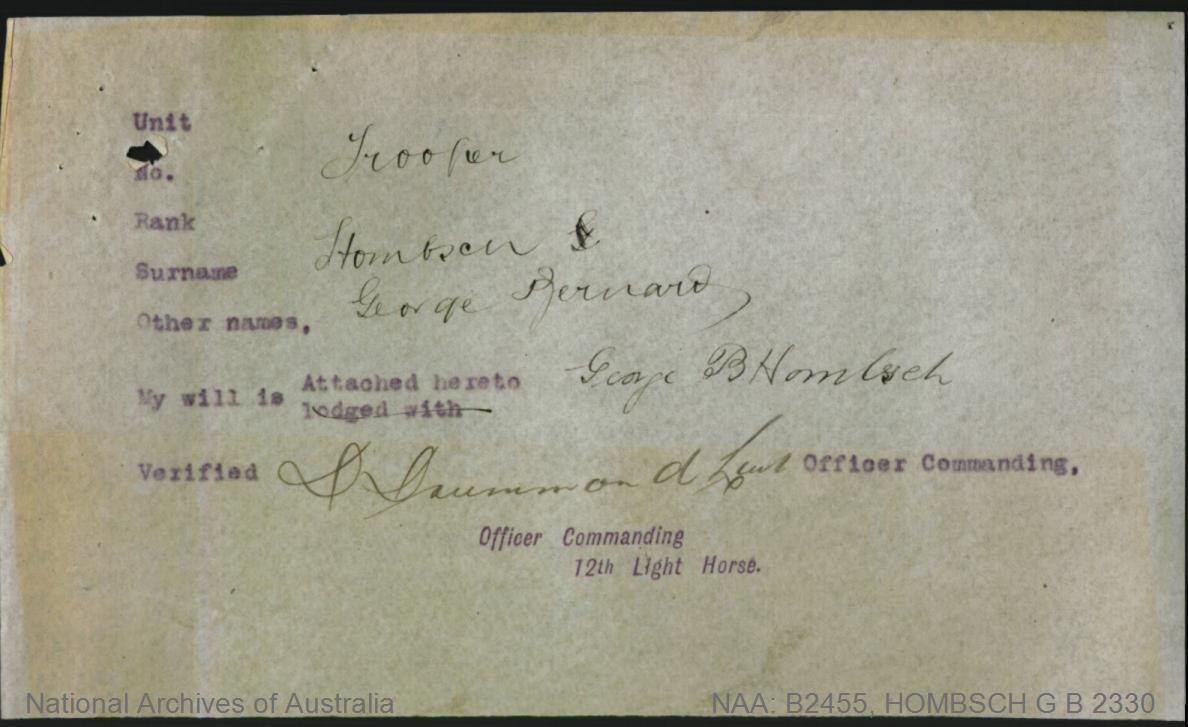 Unit
No. Trooper
Rank
Surname Hombsch G
Other names, George Bernard
My will is Attached hereto George B Hombsch
lodged with
Verified D Drummond Lieut Officer Commanding,
Officer Commanding
12th Light Horse.
National Archives of Australia NAA: B2455, HOMBSCH G B 2330